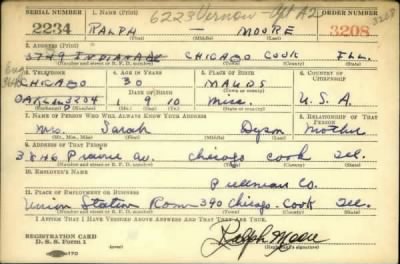 SERIAL NUMBER 1. NAME (Print) 6223 Vernon Apt A2 ORDER NUMBER 3208
2234 RALPH — MOORE 3208
(First) (Middle) (Last)
2. ADDRESS (Print)
3749 INDIANA CHICAGO COOK ILL.
(Number and street or R. F. D. number) (Town) (County) (State)
3. TELEPHONE 4. AGE IN YEARS 5. PLACE OF BIRTH 6. COUNTRY OF CITIZENSHIP
CHICAGO 30 Miss. U.S.A.
DATE OF BIRTH
1 9 10
(Town or county)
(Mo.) (Day) (Yr.) (State or country)
7. NAME OF PERSON WHO WILL ALWAYS KNOW YOUR ADDRESS 8. RELATIONSHIP OF THAT PERSON
Mrs. Sarah Dyson Mother
(Mr., Mrs., Miss) (First) (Middle) (Last)
9. ADDRESS OF THAT PERSON
3846 Prairie av. Chicago Cook Ill.
(Number and street or R. F. D. number) (Town) (County) (State)
10. EMPLOYER'S NAME
Pullman Co.
11. PLACE OF EMPLOYMENT OR BUSINESS
Union Station Room 390 Chicago. Cook Ill.
(Number and street or R. F. D. number) (Town) (County) (State)
I AFFIRM THAT I HAVE VERIFIED ABOVE ANSWERS AND THAT THEY ARE TRUE.
REGISTRATION CARD
D. S. S. Form 1 Ralph Moore
(Registrant's signature)